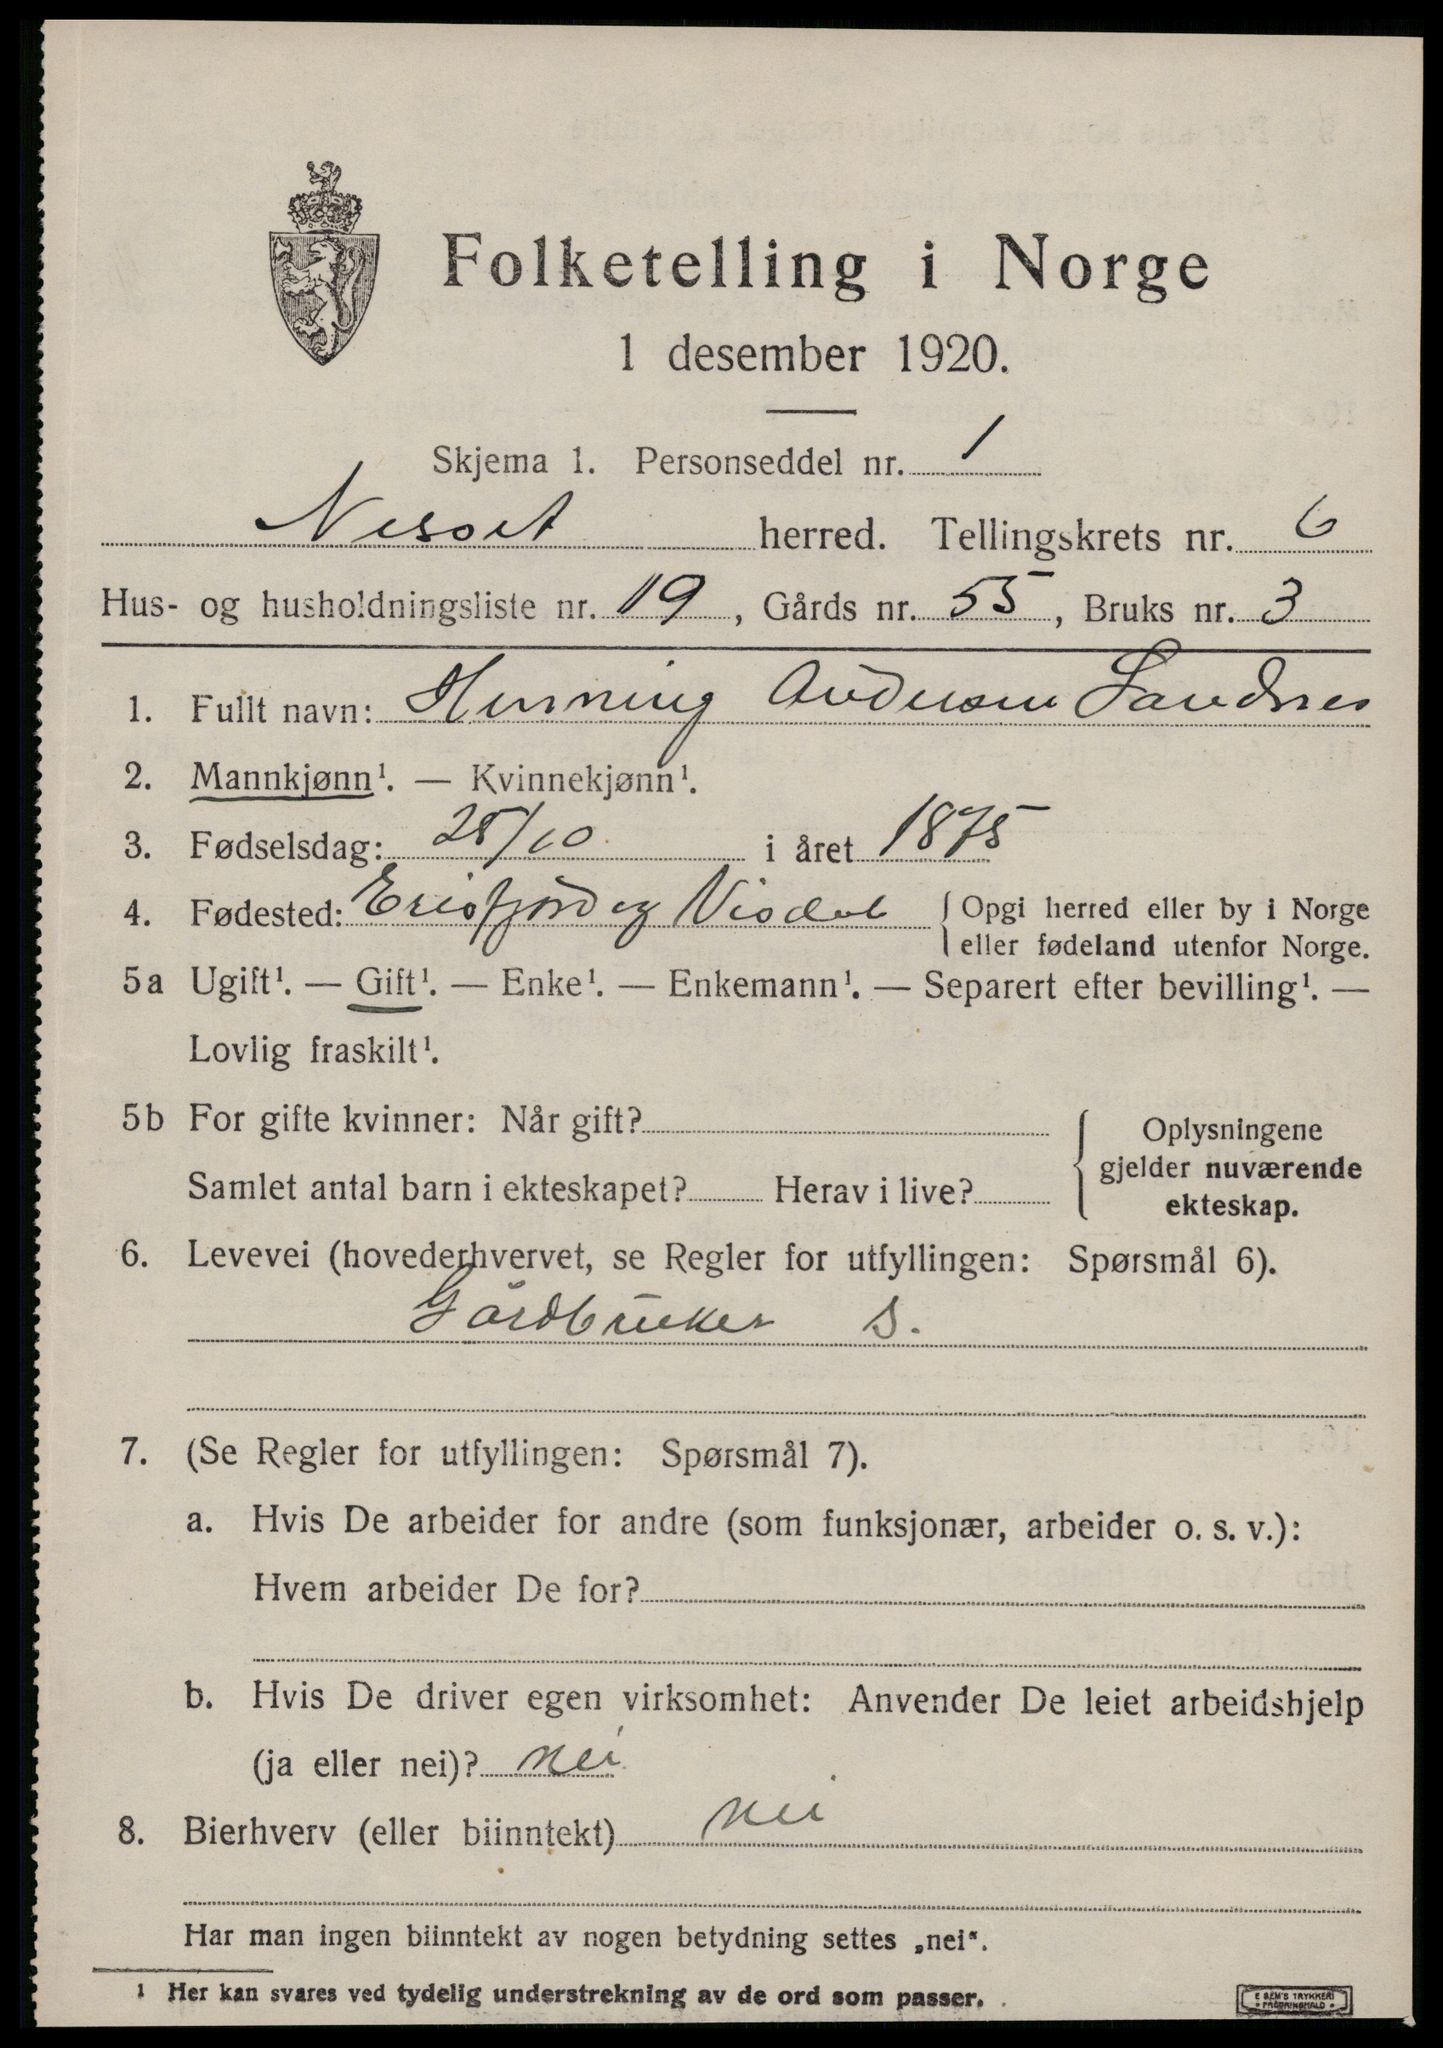 Folketelling i Norge
1 desember 1920.
Skjema 1. Personseddel nr. 1
Nesset herred. Tellingskrets nr. 6
Hus- og husholdningsliste nr. 19, Gårds nr. 55, Bruks nr. 3
1. Fullt navn: Henning Andersen Sandnes
2. Mannkjønn¹. — Kvinnekjønn¹.
3. Fødselsdag: 25/10 i året 1875
4. Fødested: Eresfjord og Visdal { Opgi herred eller by i Norge
eller fødeland utenfor Norge.
5a Ugift¹. — Gift¹. — Enke¹. — Enkemann¹. — Separert efter bevilling¹. —
Lovlig fraskilt¹.
5b For gifte kvinner: Når gift?
Samlet antal barn i ekteskapet? Herav i live?
{ Oplysningene
gjelder nuværende
ekteskap.
6. Levevei (hovederhvervet, se Regler for utfyllingen: Spørsmål 6).
Gårdbruker S.
7. (Se Regler for utfyllingen: Spørsmål 7).
a. Hvis De arbeider for andre (som funksjonær, arbeider o. s. v.):
Hvem arbeider De for?
b. Hvis De driver egen virksomhet: Anvender De leiet arbeidshjelp
(ja eller nei)? nei
8. Bierhverv (eller biinntekt) nei
Har man ingen biinntekt av nogen betydning settes „nei".
1 Her kan svares ved tydelig understrekning av de ord som passer.
E SEM'S TRYKKERI
FREDRIKSHALD